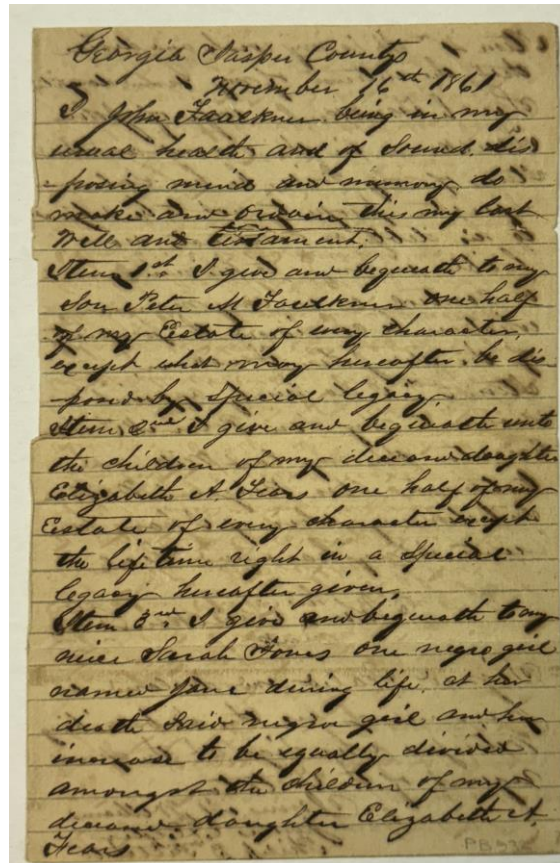 Georgia Jasper County
November 16th 1861
I John Faulkner being in my
usual health and of Sound dis
-posing mind and memory do
make and ordain this my last
Will and testament.
Item 1st I give and bequeath to my
Son Peter M Faulkner one half
of my Estate of every character,
except what may hereafter be dis
-posed by special legacy
Item 2nd I give and bequeath unto
the children of my deceased daughter
Elizabeth A Fears one half of my
Estate of every character except
the life time right in a special
legacy hereafter given,
Item 3rd I give and bequeath to my
niece Sarah one negro girl
named Jane during life, at her
death Said negro girl and her
increase to be equally divided
amongst the children of my
deceased daughter Elizabeth A
Fears